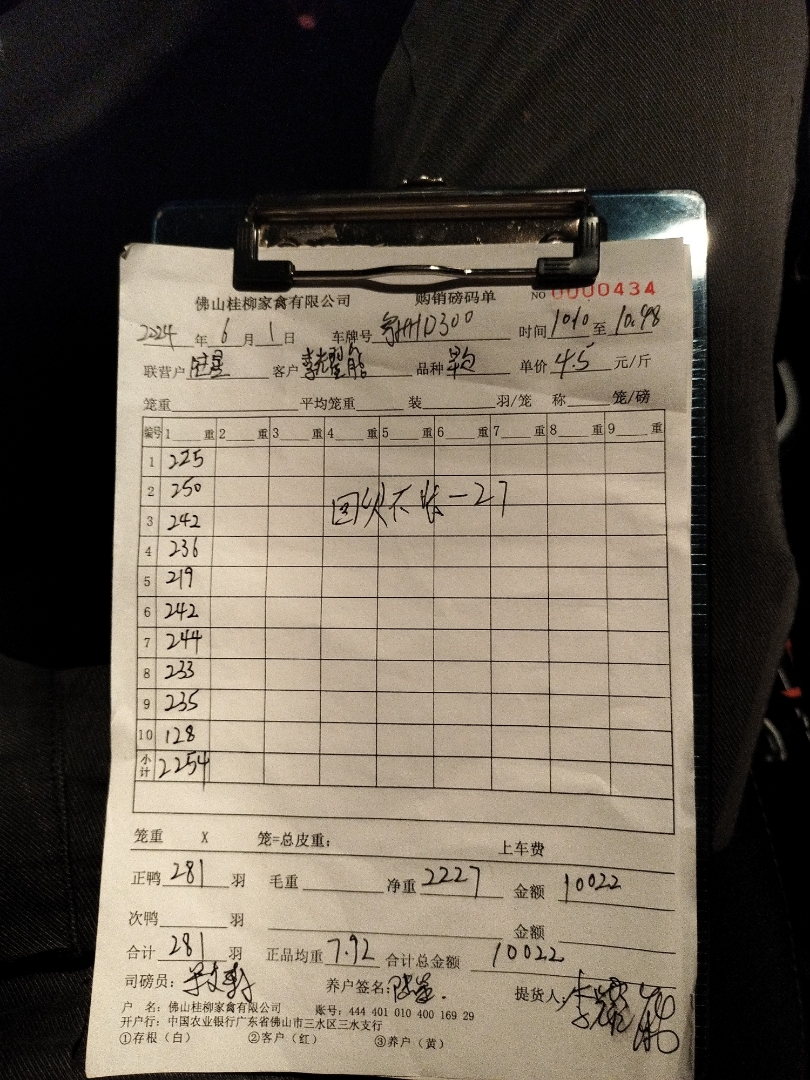 佛山桂柳家禽有限公司 购销磅码单 NO 0000434
2024 年 6 月 1 日 车牌号 HD300 时间 1010 至 10.48
联营户 客户 李耀能 品种 单价 4.5 元/斤
笼重 平均笼重 装 羽/笼 称 笼/磅
编号 1 重 2 重 3 重 4 重 5 重 6 重 7 重 8 重 9 重
1 225
2 250
回 不 一27
3 242
4 236
5 219
6 242
7 244
8 233
9 235
10 128
小计 2254
笼重 X 笼=总皮重: 上车费
正鸭 281 羽 毛重 净重 2227 金额 10022
次鸭 羽 金额
合计 281 羽 正品均重 7.92 合计总金额 10022
司磅员: 养户签名: 提货人: 李耀能
户 名: 佛山桂柳家禽有限公司 账号: 444 401 010 400 169 29
开户行: 中国农业银行广东省佛山市三水区三水支行
①存根(白) ②客户(红) ③养户(黄)